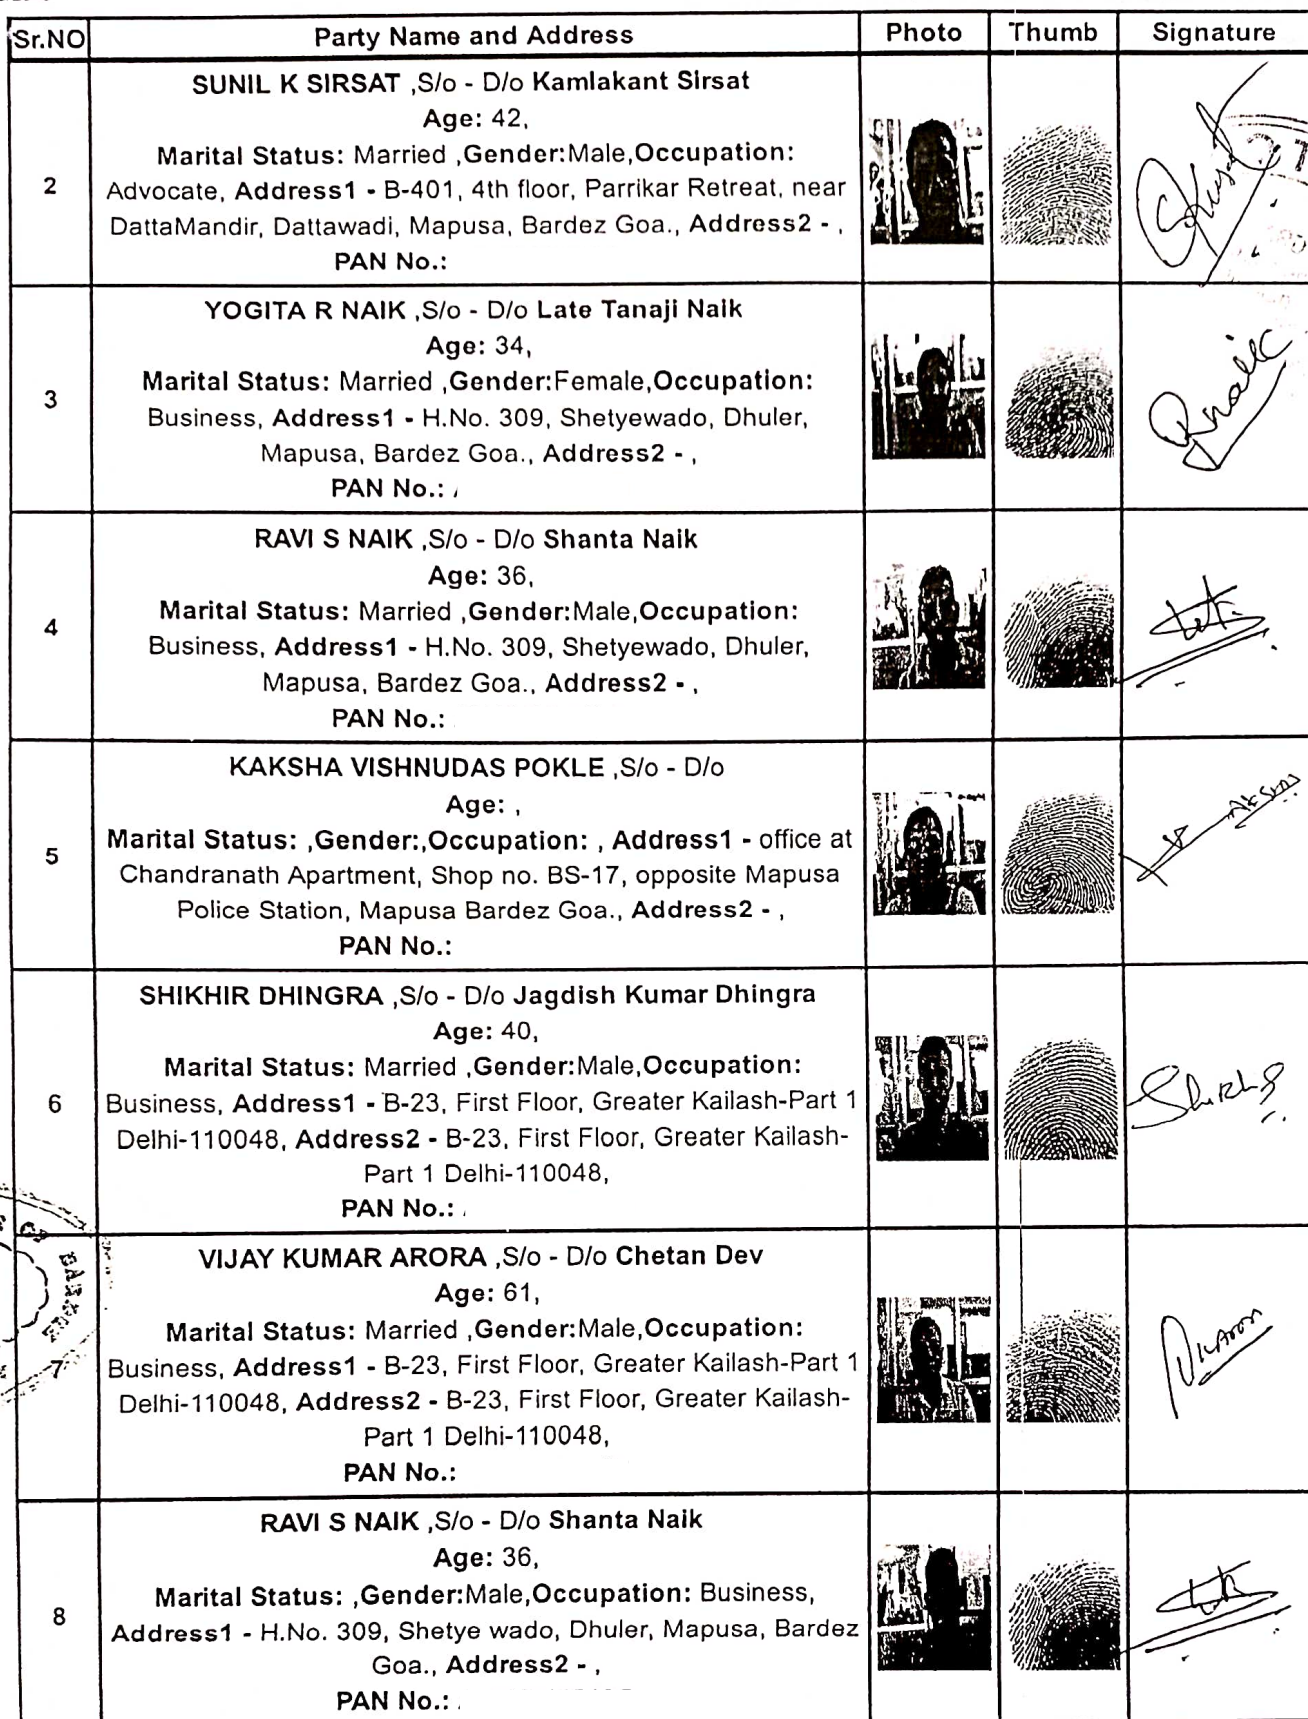 Sr.NO Party Name and Address Photo Thumb Signature
SUNIL K SIRSAT ,S/o - D/o Kamlakant Sirsat
Age: 42,
Marital Status: Married ,Gender:Male,Occupation:
2 Advocate, Address1 - B-401, 4th floor, Parrikar Retreat, near
DattaMandir, Dattawadi, Mapusa, Bardez Goa., Address2 - ,
PAN No.:
YOGITA R NAIK ,S/o - D/o Late Tanaji Naik
Age: 34,
Marital Status: Married ,Gender:Female,Occupation:
3 Business, Address1 - H.No. 309, Shetyewado, Dhuler,
Mapusa, Bardez Goa., Address2 - ,
PAN No.:
RAVI S NAIK ,S/o - D/o Shanta Naik
Age: 36,
Marital Status: Married ,Gender:Male,Occupation:
4 Business, Address1 - H.No. 309, Shetyewado, Dhuler,
Mapusa, Bardez Goa., Address2 - ,
PAN No.:
KAKSHA VISHNUDAS POKLE ,S/o - D/o
Age: ,
Marital Status: ,Gender:,Occupation: , Address1 - office at
5 Chandranath Apartment, Shop no. BS-17, opposite Mapusa
Police Station, Mapusa Bardez Goa., Address2 - ,
PAN No.:
SHIKHIR DHINGRA ,S/o - D/o Jagdish Kumar Dhingra
Age: 40,
Marital Status: Married ,Gender:Male,Occupation:
6 Business, Address1 - B-23, First Floor, Greater Kailash-Part 1
Delhi-110048, Address2 - B-23, First Floor, Greater Kailash-
Part 1 Delhi-110048,
PAN No.:
VIJAY KUMAR ARORA ,S/o - D/o Chetan Dev
Age: 61,
Marital Status: Married ,Gender:Male,Occupation:
7 Business, Address1 - B-23, First Floor, Greater Kailash-Part 1
Delhi-110048, Address2 - B-23, First Floor, Greater Kailash-
Part 1 Delhi-110048,
PAN No.:
BARDEZ
RAVI S NAIK ,S/o - D/o Shanta Naik
Age: 36,
Marital Status: ,Gender:Male,Occupation: Business,
8 Address1 - H.No. 309, Shetye wado, Dhuler, Mapusa, Bardez
Goa., Address2 - ,
PAN No.: